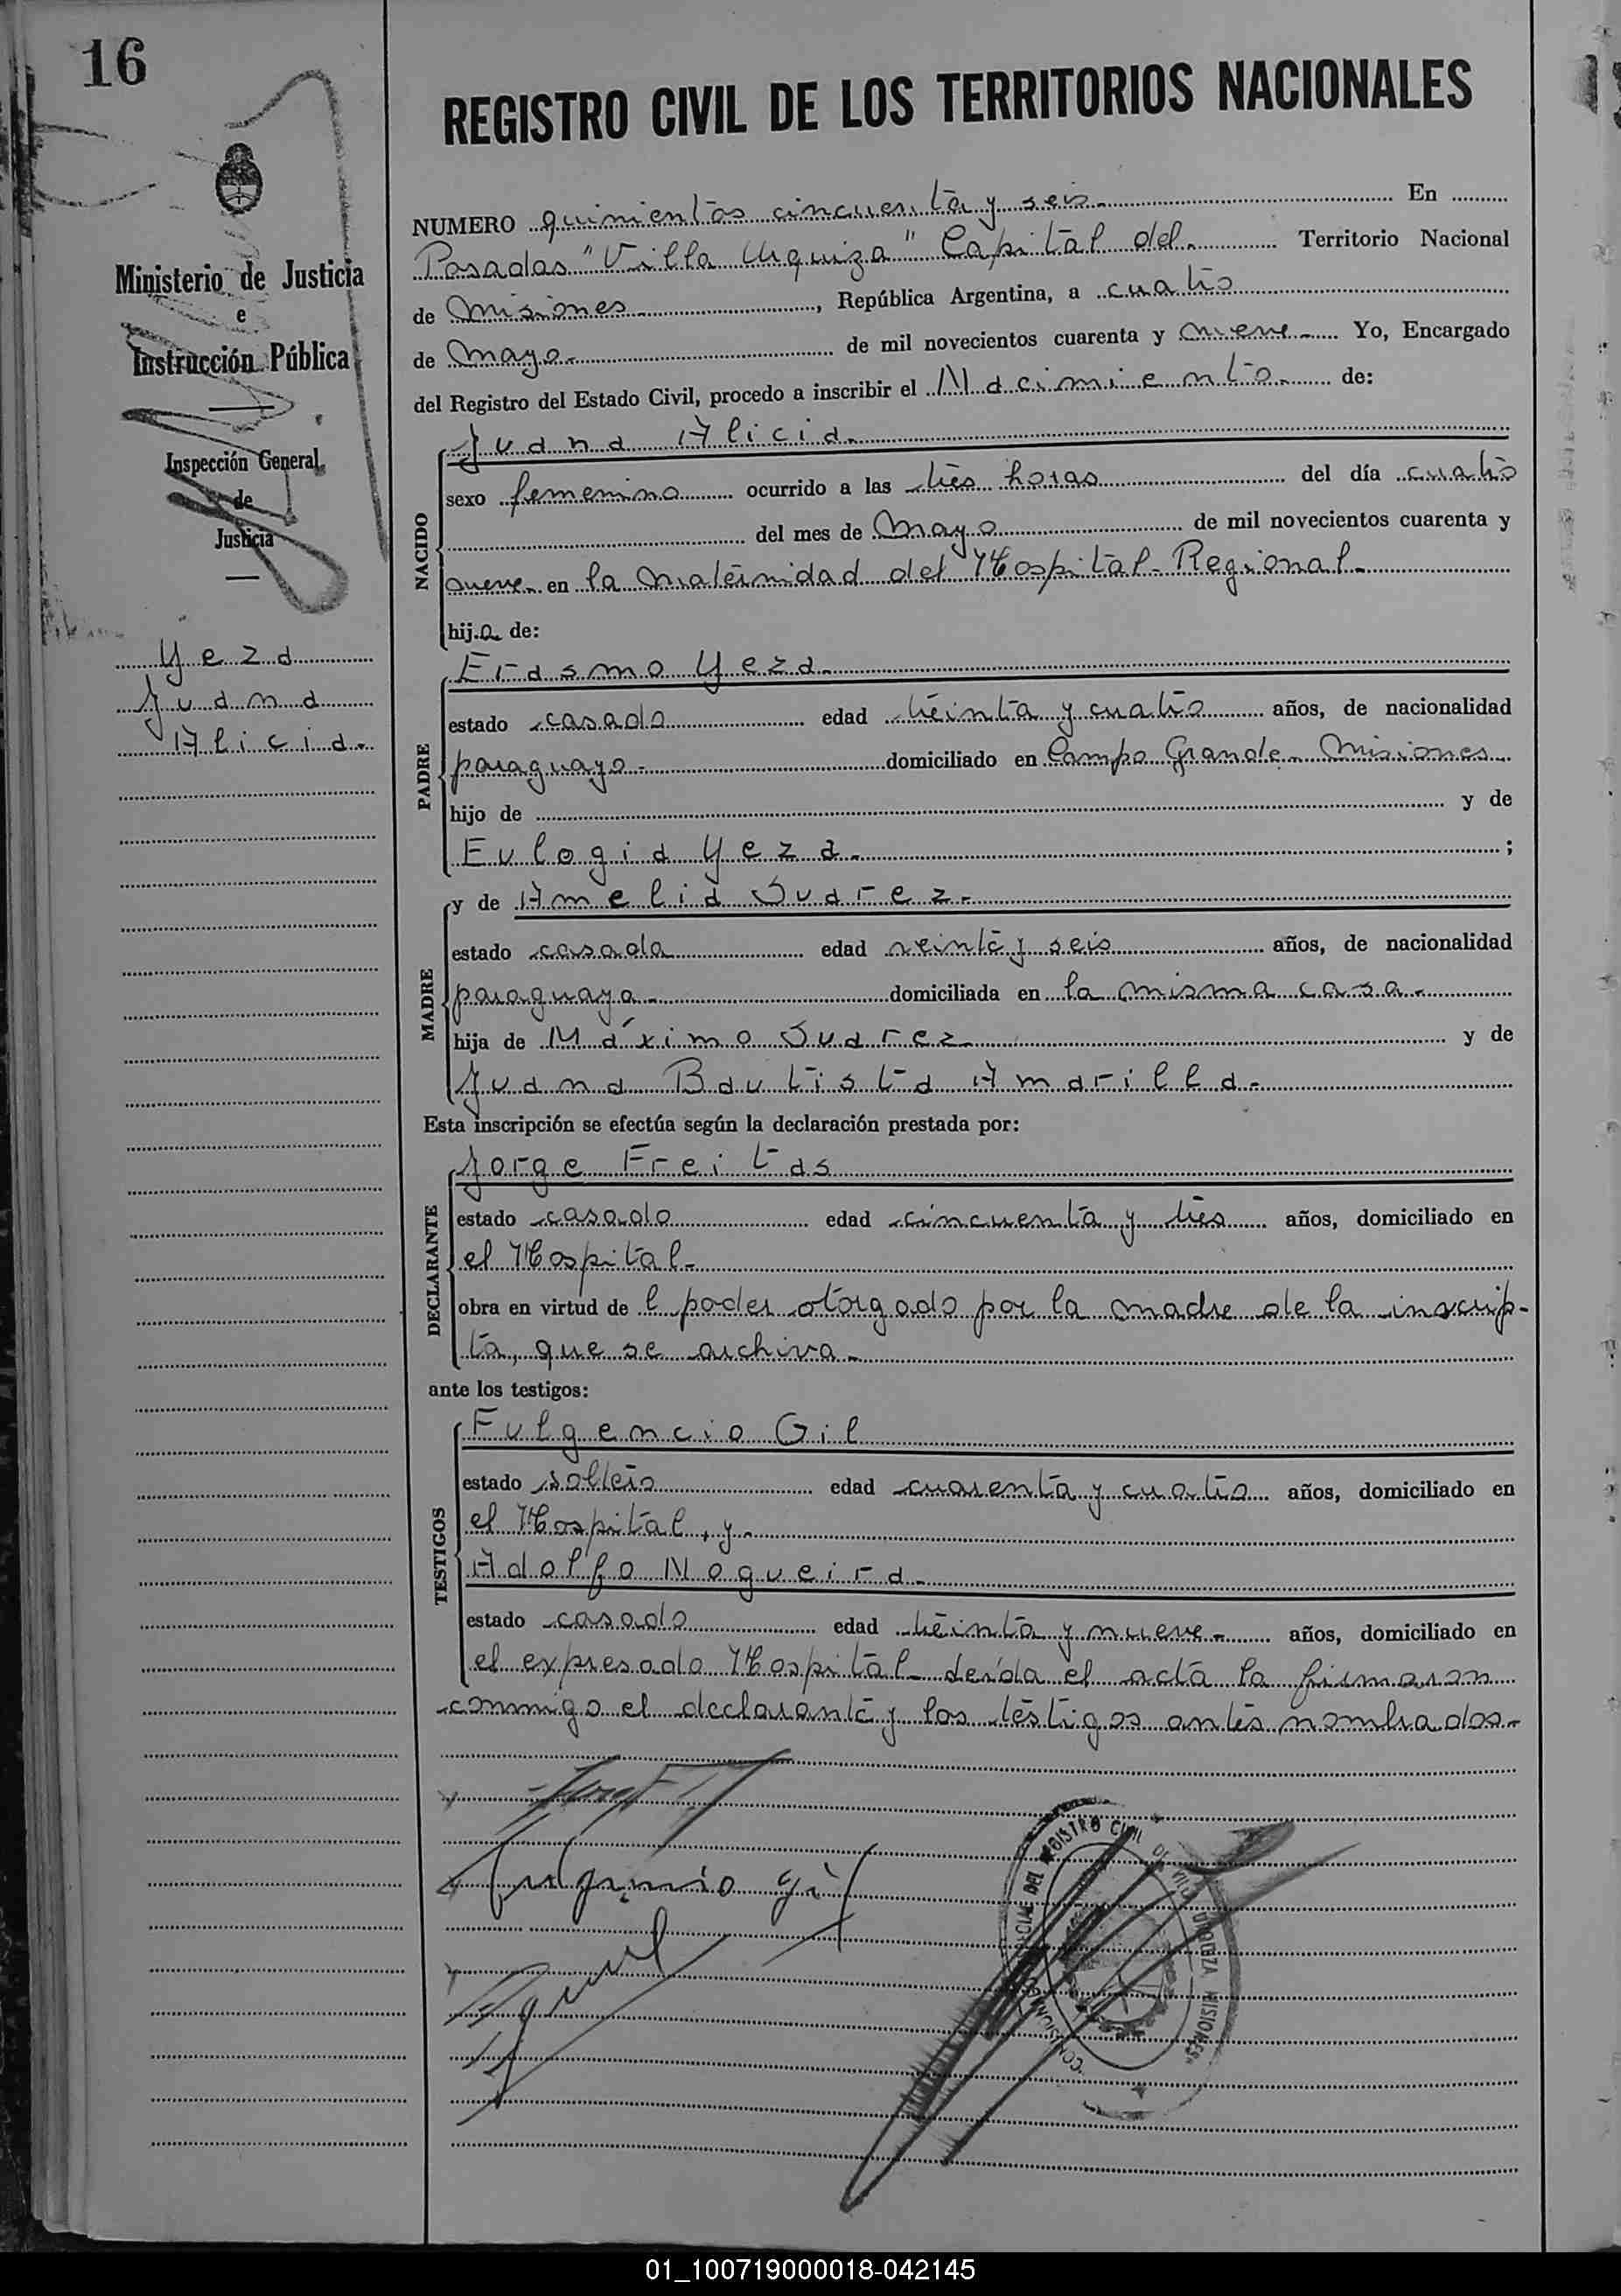 16
REGISTRO CIVIL DE LOS TERRITORIOS NACIONALES
Ministerio de Justicia
e
Instrucción Pública
Inspección General
de
Justicia
Yeza
Juana
Alicia.
NUMERO quinientos cincuenta y seis. En
Posadas "Villa Urquiza" Capital del. Territorio Nacional
de Misiones, República Argentina, a cuatro
de Mayo. de mil novecientos cuarenta y nueve. Yo, Encargado
del Registro del Estado Civil, procedo a inscribir el Nacimiento. de:
NACIDO
Juana Alicia.
sexo femenino ocurrido a las tres horas del día cuatro
del mes de Mayo de mil novecientos cuarenta y
nueve. en la Maternidad del Hospital Regional.
hija de:
PADRE
Erasmo Yeza.
estado casado edad treinta y cuatro años, de nacionalidad
paraguayo. domiciliado en Campo Grande. Misiones.
hijo de y de
Eulogia Yeza. ;
MADRE
y de Amelia Suarez.
estado casada edad veinte y seis años, de nacionalidad
paraguaya. domiciliada en la misma casa.
hija de Máximo Suarez y de
Juana Bautista Amarilla.
Esta inscripción se efectúa según la declaración prestada por:
DECLARANTE
Jorge Freitas
estado casado edad cincuenta y tres años, domiciliado en
el Hospital.
obra en virtud de l poder otorgado por la madre de la inscrip-
ta, que se archiva.
ante los testigos:
TESTIGOS
Fulgencio Gil
estado soltero edad cuarenta y cuatro años, domiciliado en
el Hospital, y.
Adolfo Nogueira.
estado casado edad treinta y nueve. años, domiciliado en
el expresado Hospital. Leída el acta la firmaron
conmigo el declarante y los testigos antes nombrados.
Fulgencio Gil
DEL REGISTRO CIVIL DE VILLA URQUIZA MISIONES
01_100719000018-042145